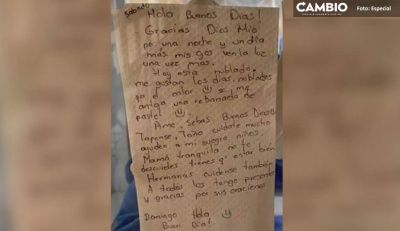 CAMBIO
Foto: Especial
Sabado
Hola Buenos Dias!
Gracias Dios Mio
por una noche y un día
más, mis ojos ven la luz
una vez más.
Hoy esta nublado,
me gustan los dias nublados
ya el calor
amiga una rebanada de
pastel!
Amor, Sebas Buenos Dias
Tapense, Toño cuidate mucho
ayuden a mi suegra niños.
Mamá tranquila no te
descuides tienes q' estar bien
Hermanas cuidense también
A todos los tengo presente
y gracias por sus oraciones
Domingo Hola
Buen Dia!